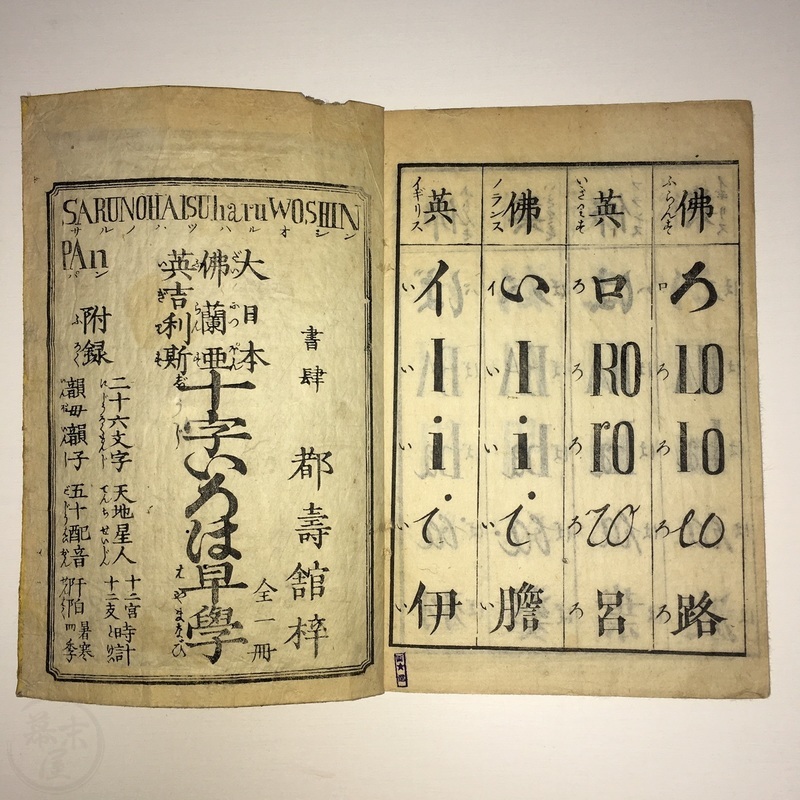 SARUNOHAISUharuWOSHIN
サルノハツハルオシン
PAn
パン
書肆 都壽舘梓
大日本
佛蘭亜
英吉利斯
十字いろは早學
はやまなび
全一冊
附録
ふろく
二十六文字 天地星人 十二宮時計
十二支
韻母韻字 五十配音 阡陌 暑寒
四季
佛
ふらんす
ろ
LO
lo
lo
路
英
いぎりす
ロ
RO
ro
ro
呂
佛
フランス
い
I
i
i
膽
英
イギリス
イ
I
i
i
伊
幕末屋